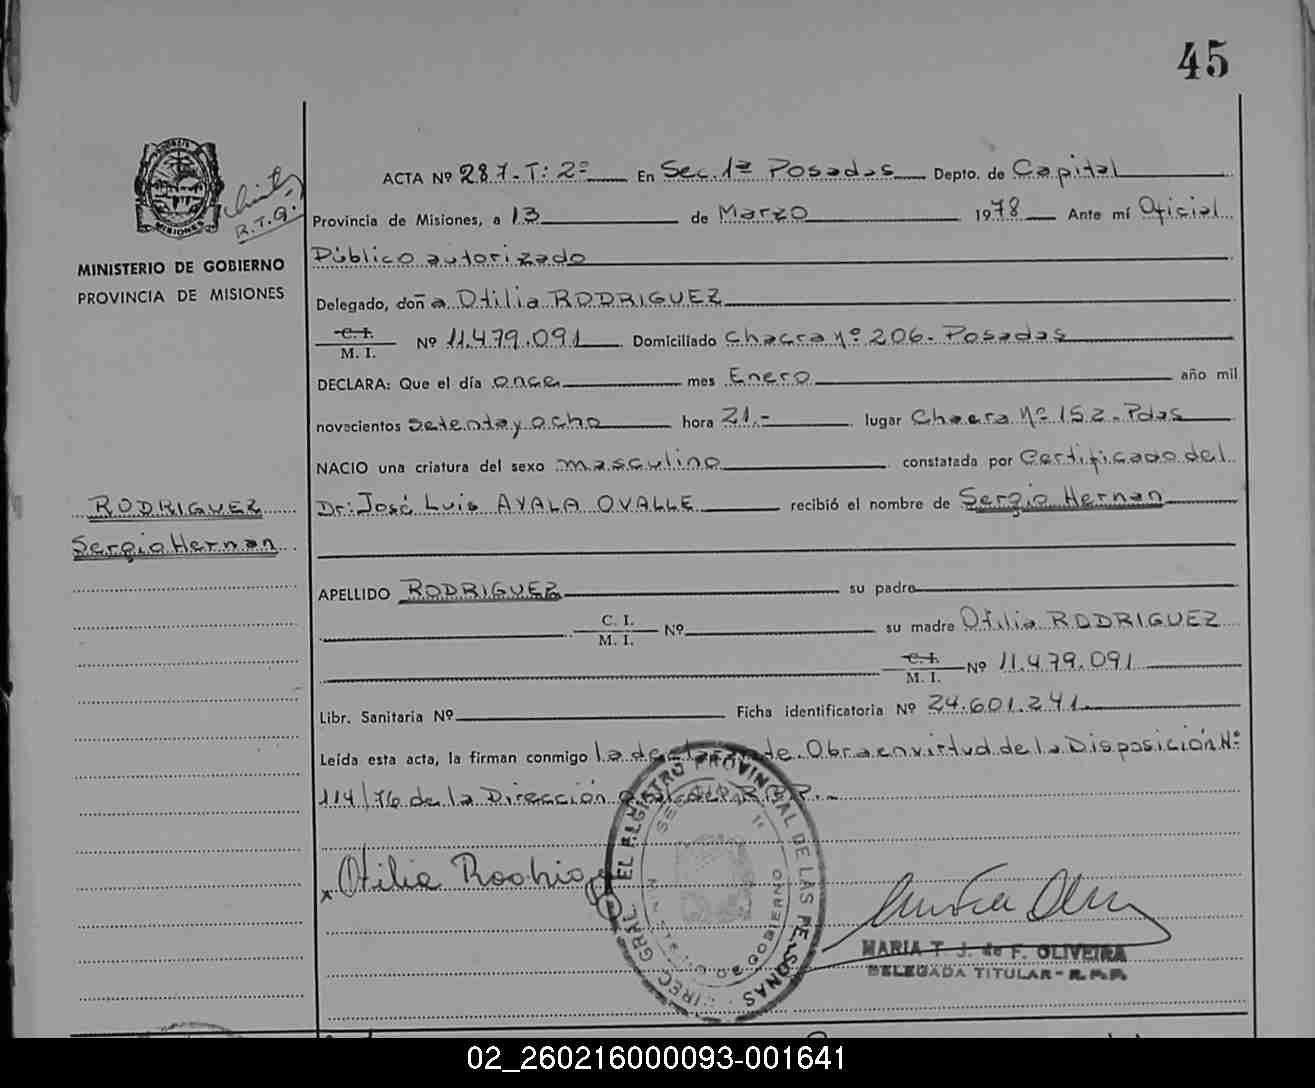 45
R.T.9.
MINISTERIO DE GOBIERNO
PROVINCIA DE MISIONES
RODRIGUEZ
Sergio Hernan
ACTA Nº 287-T: 2º En Sec. 1ª Posadas Depto. de Capital
Provincia de Misiones, a 13 de Marzo 1978 Ante mí Oficial
Público autorizado
Delegado, doña Otilia RODRIGUEZ
C. I.
M. I. Nº 11.479.091 Domiciliado Chacra nº 206- Posadas
DECLARA: Que el día once mes Enero año mil
novecientos setenta y ocho hora 21.- lugar Chacra Nº 152- Pdas
NACIO una criatura del sexo masculino constatada por Certificado del
Dr: José Luis AYALA OVALLE recibió el nombre de Sergio Hernan
APELLIDO RODRIGUEZ su padre
C. I.
M. I. Nº su madre Otilia RODRIGUEZ
C. I.
M. I. Nº 11.479.091
Libr. Sanitaria Nº Ficha identificatoria Nº 24.601.241
Leída esta acta, la firman conmigo la declarante. Obra en virtud de la Disposición Nº
114/76 de la Dirección Gral del R.P.P.-
DIREC. GRAL. EL REGISTRO PROVINCIAL DE LAS PERSONAS
GOBIERNO
x Otilia Rodrig
MARIA T. J. de F. OLIVEIRA
DELEGADA TITULAR - R.P.P.
02_260216000093-001641